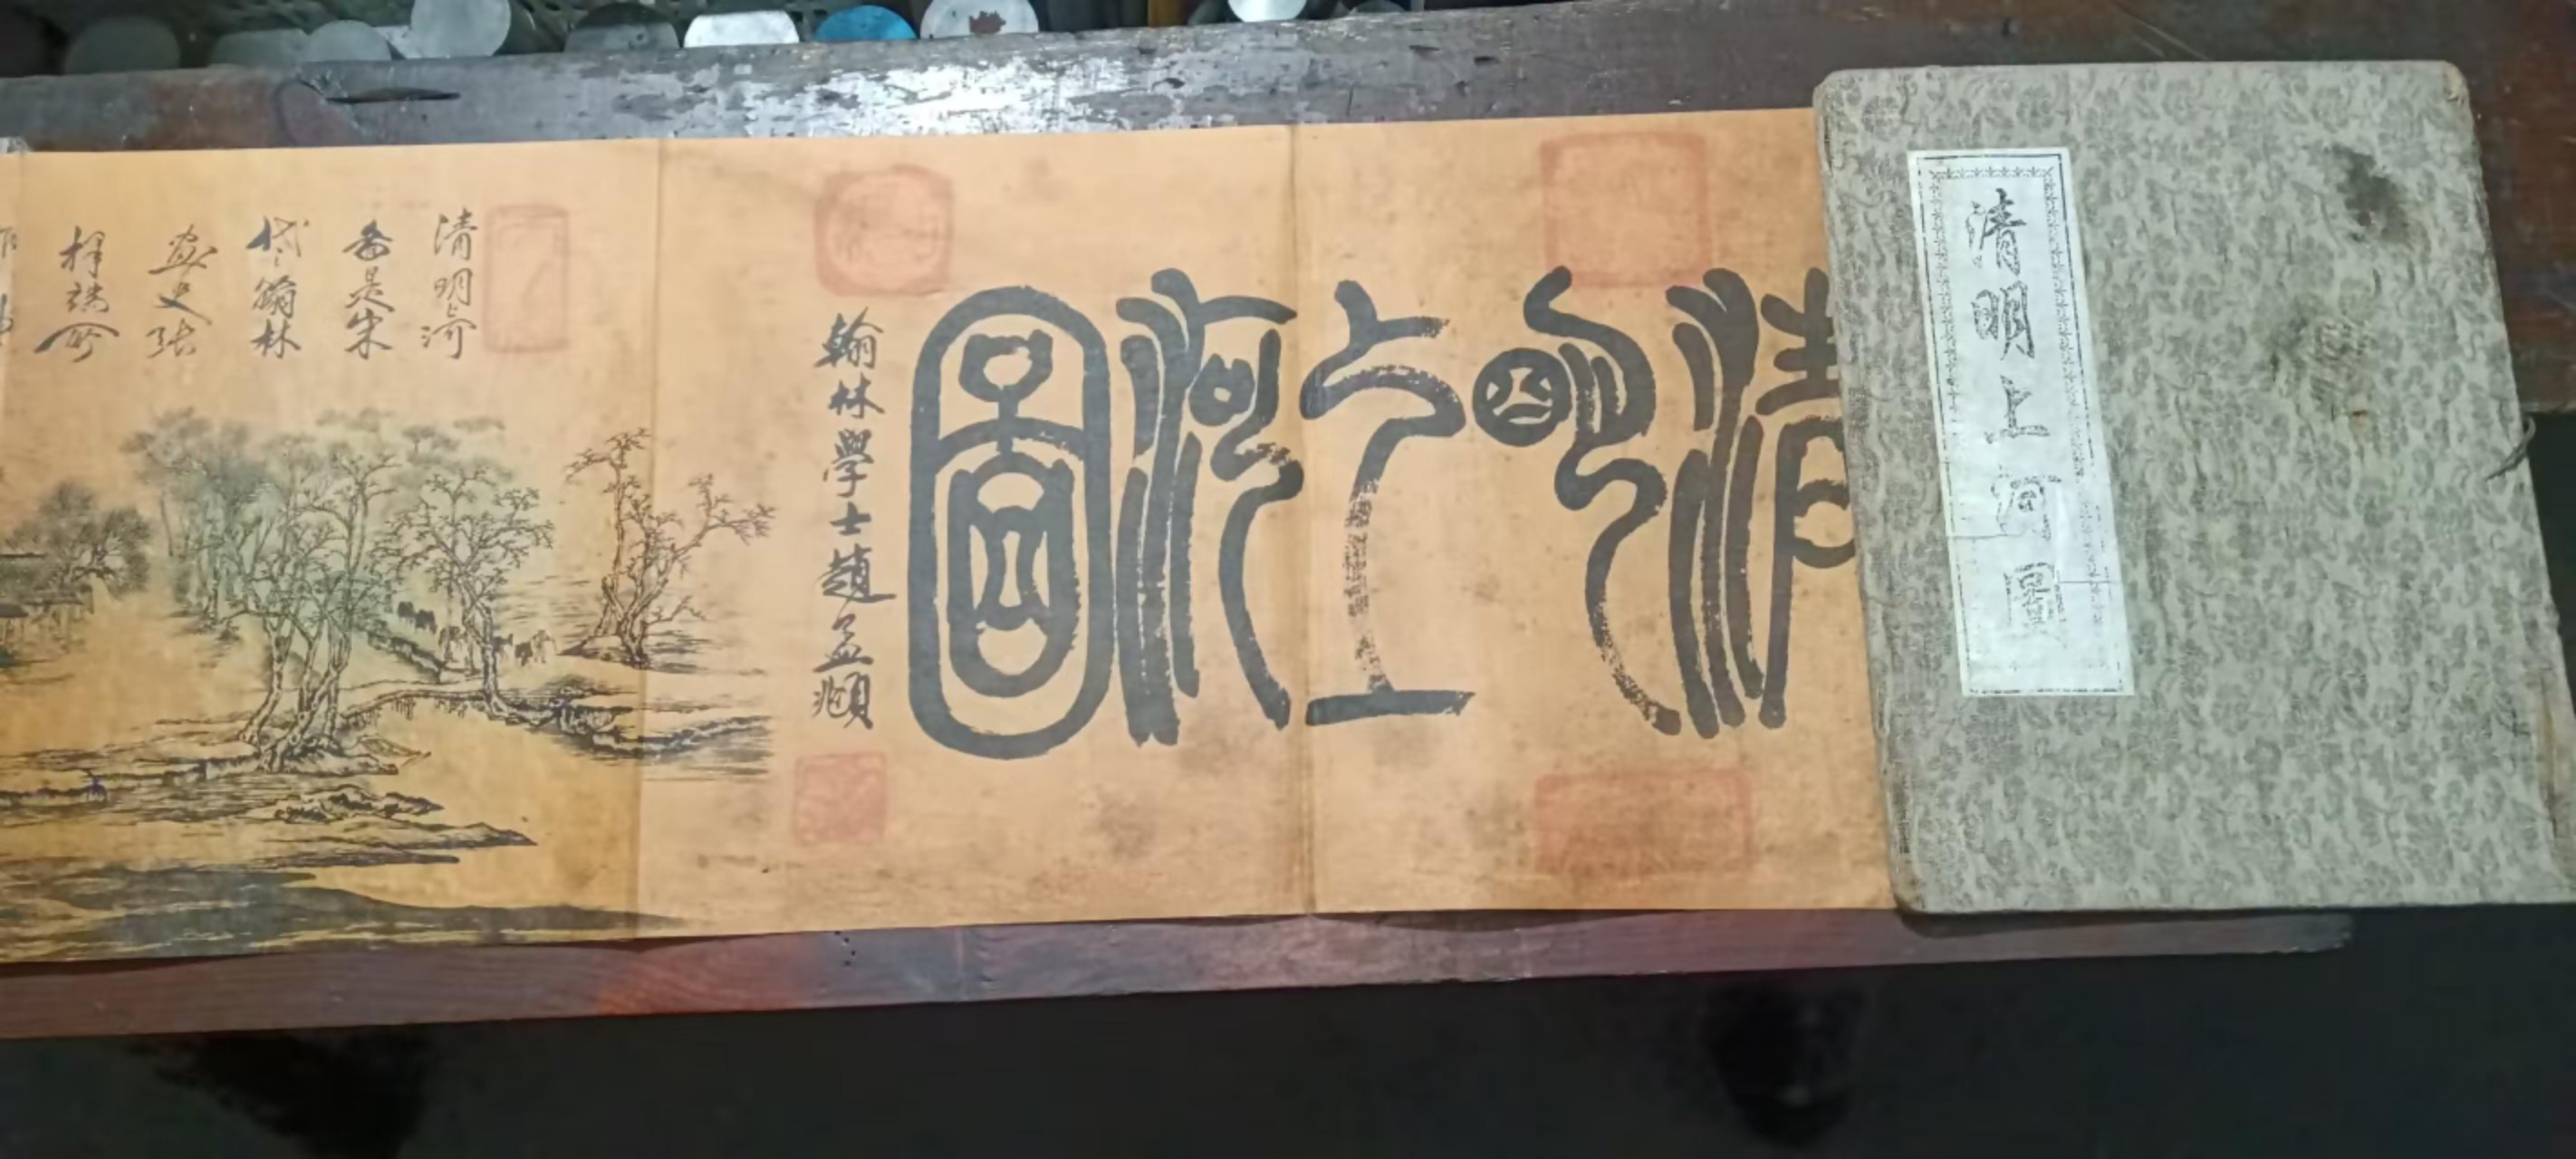 清明上河圖
清明上河圖
翰林學士趙孟頫
清明上河
啚是宋
代翰林
畫史張
擇端所